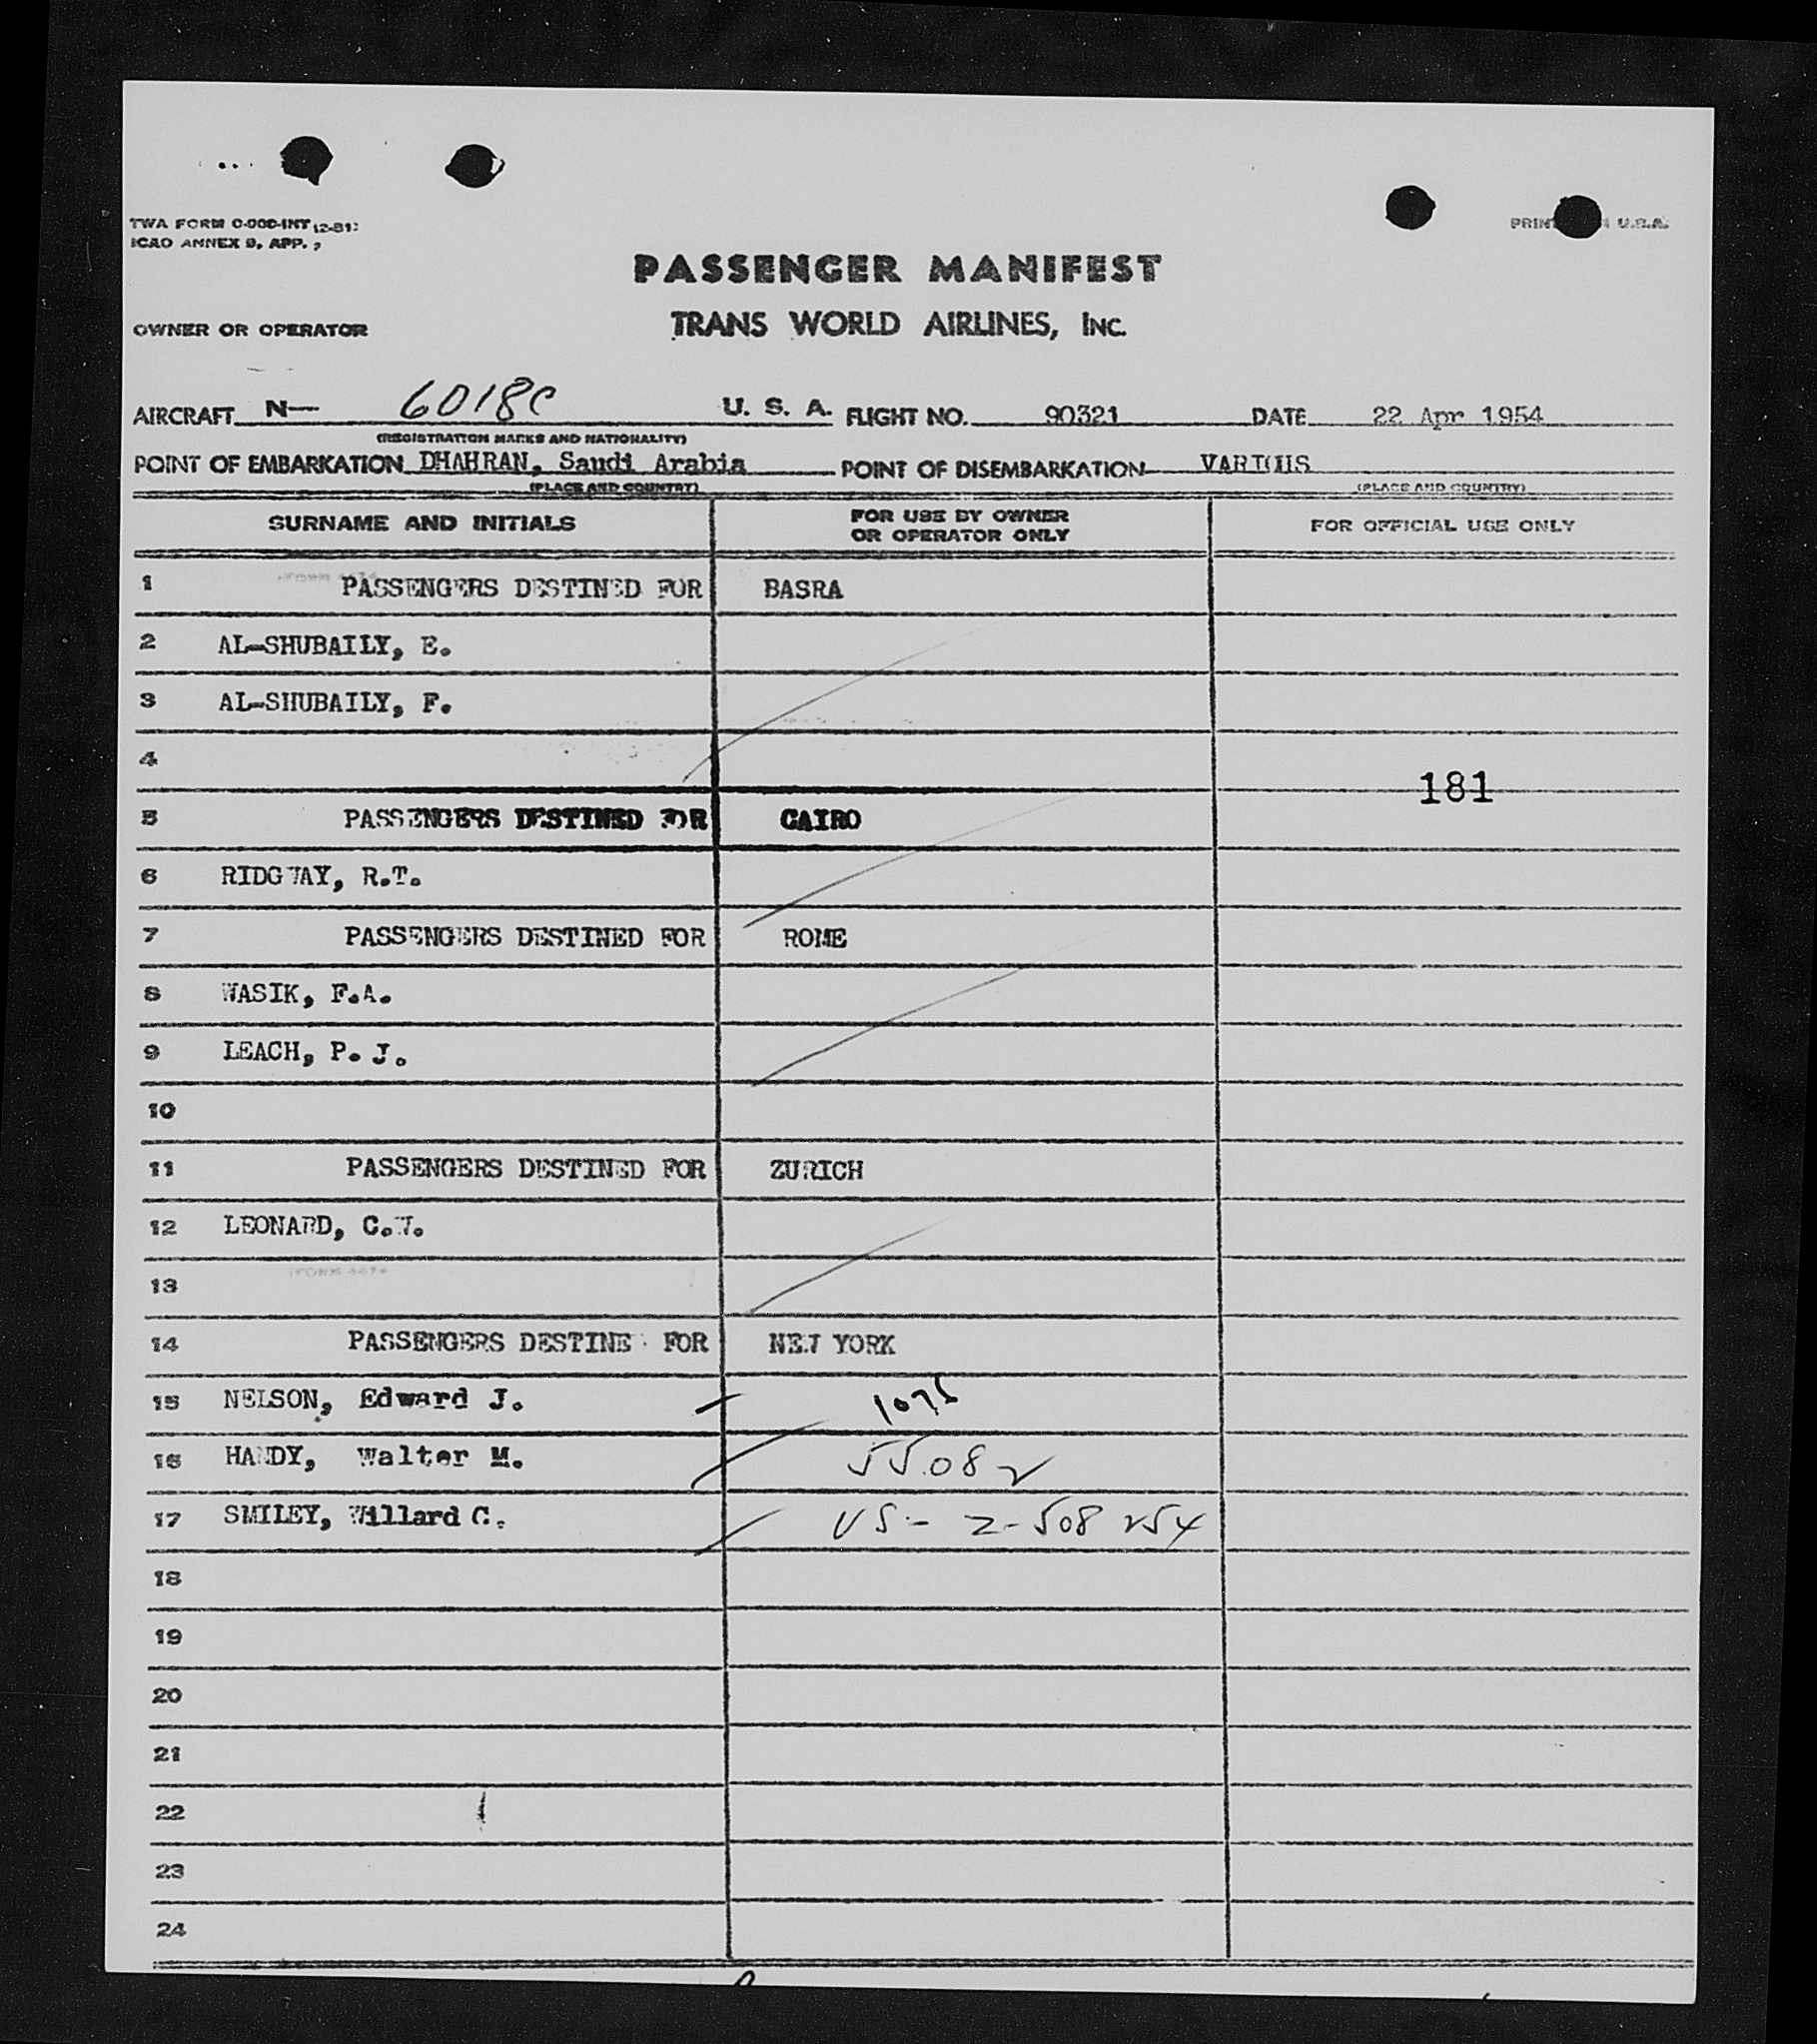 TWA FORM
ICAO ANNEX 9, APP. 2
PRINTED IN U.S.A.
PASSENGER MANIFEST
OWNER OR OPERATOR TRANS WORLD AIRLINES, INC.
AIRCRAFT N— 6018C U. S. A. FLIGHT NO. 90321 DATE 22 Apr 1954
(REGISTRATION MARKS AND NATIONALITY)
POINT OF EMBARKATION DHAHRAN, Saudi Arabia POINT OF DISEMBARKATION VARIOUS
(PLACE AND COUNTRY) (PLACE AND COUNTRY)
SURNAME AND INITIALS FOR USE BY OWNER OR OPERATOR ONLY FOR OFFICIAL USE ONLY
1 PASSENGERS DESTINED FOR BASRA
2 AL-SHUBAILY, E.
3 AL-SHUBAILY, F.
4
181
5 PASSENGERS DESTINED FOR CAIRO
6 RIDGWAY, R.T.
7 PASSENGERS DESTINED FOR ROME
8 WASIK, F.A.
9 LEACH, P. J.
10
11 PASSENGERS DESTINED FOR ZURICH
12 LEONARD, C.W.
13
14 PASSENGERS DESTINED FOR NEW YORK
15 NELSON, Edward J.
16 HANDY, Walter M. 55082
17 SMILEY, Willard C. US- 2-508 254
18
19
20
21
22
23
24